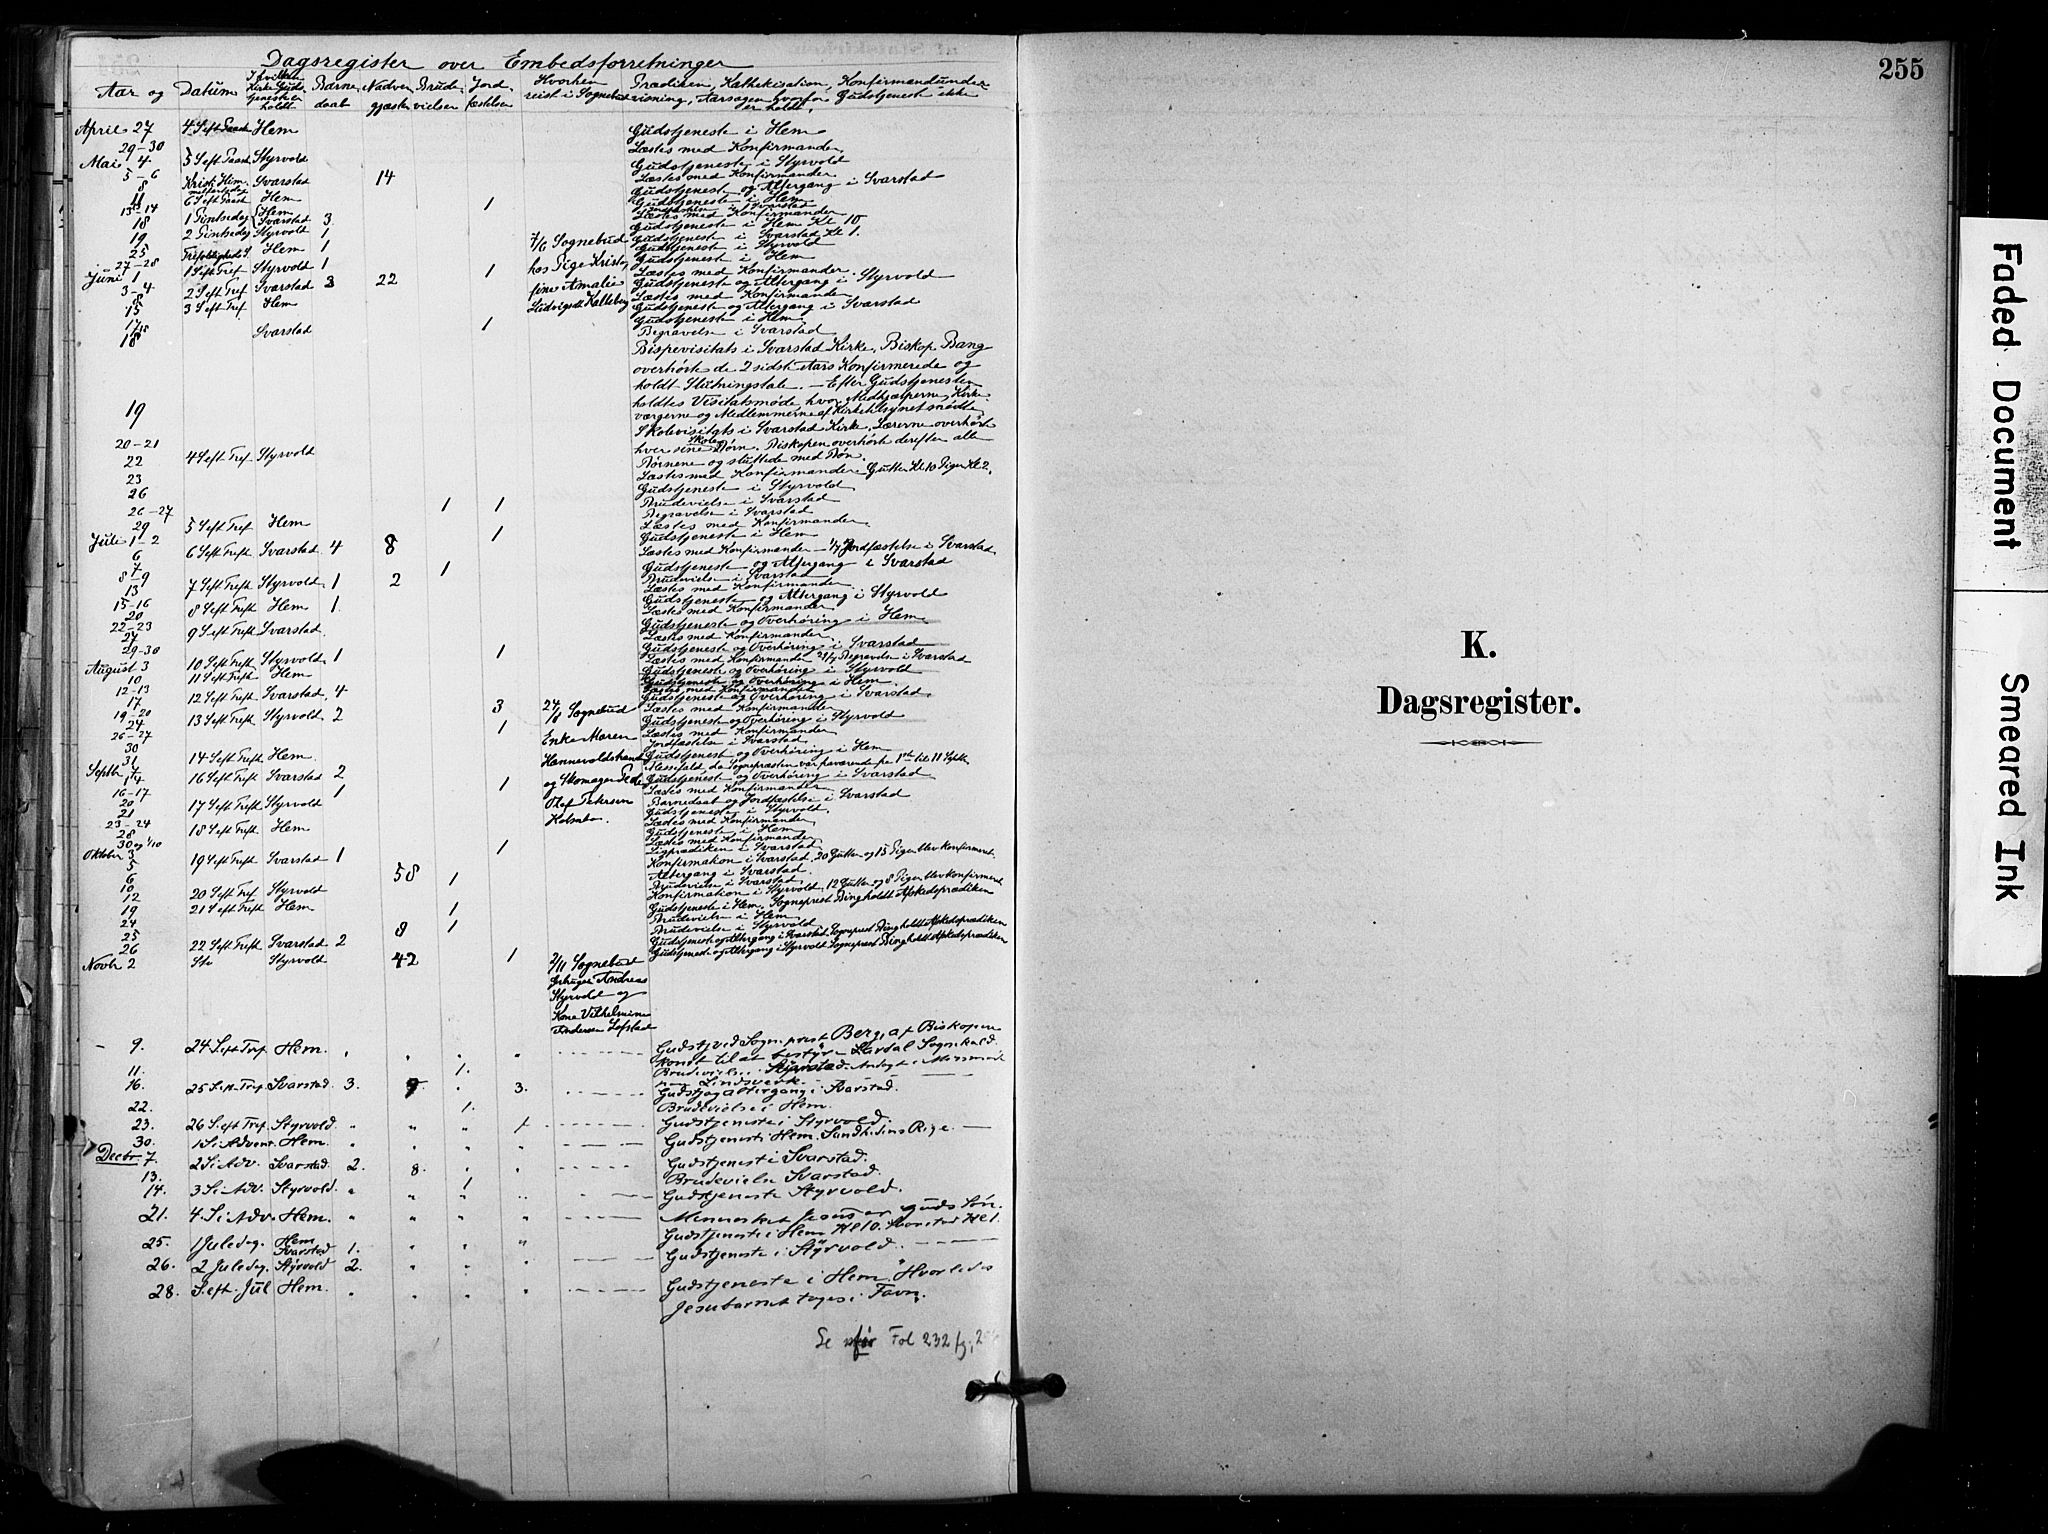 Dagsregister over Embedsforretninger
Aar og Datum I hvilken Kirke Gudstjenesten holdt Barnedaab Nadvergjæster Brudevielser Jordfæstelser Hvorhen reist i Sognebud Prædiken, Kathekisation, Konfirmandundervisning, Aarsagen hvorfor Gudstjeneste ikke er holdt.
April 27 4 S eft Paaske Hem Gudstjeneste i Hem
29-30 Læstes med Konfirmander
Mai 4 5 S eft Paaske Styrvold Gudstjeneste i Styrvold
5-6 Læstes med Konfirmander
8 Kristi Himmelfartsdag Svarstad 14 Gudstjeneste og Altergang i Svarstad
11 6 S eft Paaske Hem 1 Gudstjeneste i Hem
13-14 Læstes med Konfirmander
18 1 Pintsedag Hem Svarstad 3 Gudstjeneste i Hem Kl 10
Gudstjeneste i Svarstad Kl 1.
19 2 Pintsedag Styrvold 1 Gudstjeneste i Styrvold
25 Trefoldigheds S. Hem 1 7/6 Sognebud Gudstjeneste i Hem
27-28 hos Pige Kristo Læstes med Konfirmander
Juni 1 1 S eft Tref Styrvold 1 1 fine Amalie Gudstjeneste og Altergang i Styrvold
3-4 Læstes med Konfirmander
8 2 S eft Tref Svarstad 3 22 Ludvigsdt Kalleberg Gudstjeneste og Altergang i Svarstad
15 3 S eft Tref Hem Gudstjeneste i Hem
17 Svarstad 1 Begravelse i Svarstad
18 Bispevisitats i Svarstad Kirke, Biskop Bang
overhørte de 2 sidste Aars Konfirmerede og
holdt Slutningstale. — Efter Gudstjenesten
holdtes Visitatsmøde hvor Medhjælperne, Kirke-
værgerne og Medlemmerne af Kirketilsynet mødte
19 Skolevisitats i Svarstad Kirke, Lærerne overhørte
hver sine Skolebørn. Biskopen overhørte derefter alle
Børnene og sluttede med Bøn.
20-21 Læstes med Konfirmandere Gutter Kl 10 Piger Kl 2.
22 4 S eft Tref Styrvold Gudstjeneste i Styrvold
23 Brudevielse i Svarstad
26 1 1 Begravelse i Svarstad
26-27 Læstes med Konfirmander
29 5 S eft Tref Hem Gudstjeneste i Hem
Juli 1-2 1 Læstes med Konfirmander — 1/7 Jordfæstelse i Svarstad
6 6 S eft Treft Svarstad 4 8 Gudstjeneste og Altergang i Svarstad
7 1 Brudevielse i Svarstad
8-9 Læstes med Konfirmander
13 7 S eft Treft Styrvold 1 2 Gudstjeneste og Altergang i Styrvold
15-16 Læstes med Konfirmander
20 8 S eft Treft Hem 1. Gudstjeneste og Overhøring i Hem
22-23 Læstes med Konfirmander
27 9 S eft Treft Svarstad Gudstjeneste og Overhøring i Svarstad
29-30 1 Læstes med Konfirmander 29/7 Begravelse i Svarstad
August 3 10 S eft Treft Styrvold 1 Gudstjeneste og Overhøring i Styrvold
10 11 S eft Treft Hem Gudstjeneste og Overhøring i Hem
12-13 Læstes med Konfirmander
17 12 S eft Treft Svarstad 4 Gudstjeneste og Overhøring i Svarstad
19-20 3 24/8 Sognebud Læstes med Konfirmander
24 13 S eft Treft Styrvold 2 Gudstjeneste og Overhøring i Styrvold
26-27 1 Enke Maren Læstes med Konfirmander
30 Jordfæstelse i Svarstad
31 14 S eft Treft Hem Hannevoldstrand Gudstjeneste og Overhøring i Hem
Septbr 7 Messefald, da Sognepræsten var fraværende fra 1ste til 11 Septbr
14 16 S eft Treft Svarstad 2 og Skomager Peder Gudstjeneste og Overhøring i Svarstad
16-17 1 1 Olaf Petersen Læstes med Konfirmander
20 Holmbo. Barnedaab og Jordfæstelse i Svarstad
21 17 S eft Treft Styrvold Gudstjeneste i Styrvold
23-24 Læstes med Konfirmander
28 18 S eft Treft Hem Gudstjeneste i Hem
30 og 1/10 Læstes med Konfirmander
Oktober 3 1 Ligprædiken i Svarstad
5 19 S eft Treft Svarstad 1 Konfirmation i Svarstad, 20 Gutter og 15 Piger blev konfirmeret
6 58 Altergang i Svarstad
10 1 Brudevielse i Svarstad
12 20 S eft Tref Styrvold Konfirmation i Styrvold, 12 Gutter og 8 Piger blev konfirmeret
19 21 S eft Treft Hem Gudstjeneste i Hem, Sogneprest Bingholdt Afskedsprædiken
24 1 Brudevielse i Hem
25 1 Brudevielse i Styrvold
26 22 S eft Treft Svarstad 2 8 Gudstjeneste og Altergang i Svarstad Sogneprest Bingholdt Afskedsprædiken
Novbr 2 Styrvold 42 1 2/11 Sognebud Gudstjeneste og Altergang i Styrvold Sogneprest Bingholdt Afskedsprædiken
Andreas
Styrvold og
Kone Vilhelmine
Andersen Løfstad
9. 24 S eft Tref Hem. Gudstj ved Sogneprest Berg, af Biskopen
konst. til at bestyre Lardal Sognekald.
11. 1. Brudevielse i Svarstad. Andagt i
Lindsverk.
16. 25 S eft Tref Svarstad 3. 9 3. Gudstj og Altergang i Svarstad.
22. 1. Brudevielse i Hem.
23. 26 S eft Tref Styrvold. 1 Gudstjeneste i Styrvold.
30. 1 S i Advent Hem. Gudstjeneste i Hem. Sandhedens Rige. —
Decbr 7. 2 S i Adv. Svarstad. 2. 8. Gudstjeneste i Svarstad.
13. 1 Brudevielse Svarstad.
14. 3 S i Adv. Styrvold. Gudstjeneste Styrvold.
21. 4 S i Adv. Hem. Mennesket Jesus er Guds Søn.
25. 1 Juledag. Hem Svarstad 1. Gudstjeneste i Hem Kl 10. Svarstad Kl 1.
26. 2 Juledag. Styrvold 2. Gudstjeneste i Styrvold.
28. S. eft. Jul Hem. Gudstjeneste i Hem. "Hvorledes
Jesubarnet tages i Favn.
Se Fol 232 fg,
255
K.
Dagsregister.
Faded Document
Smeared Ink